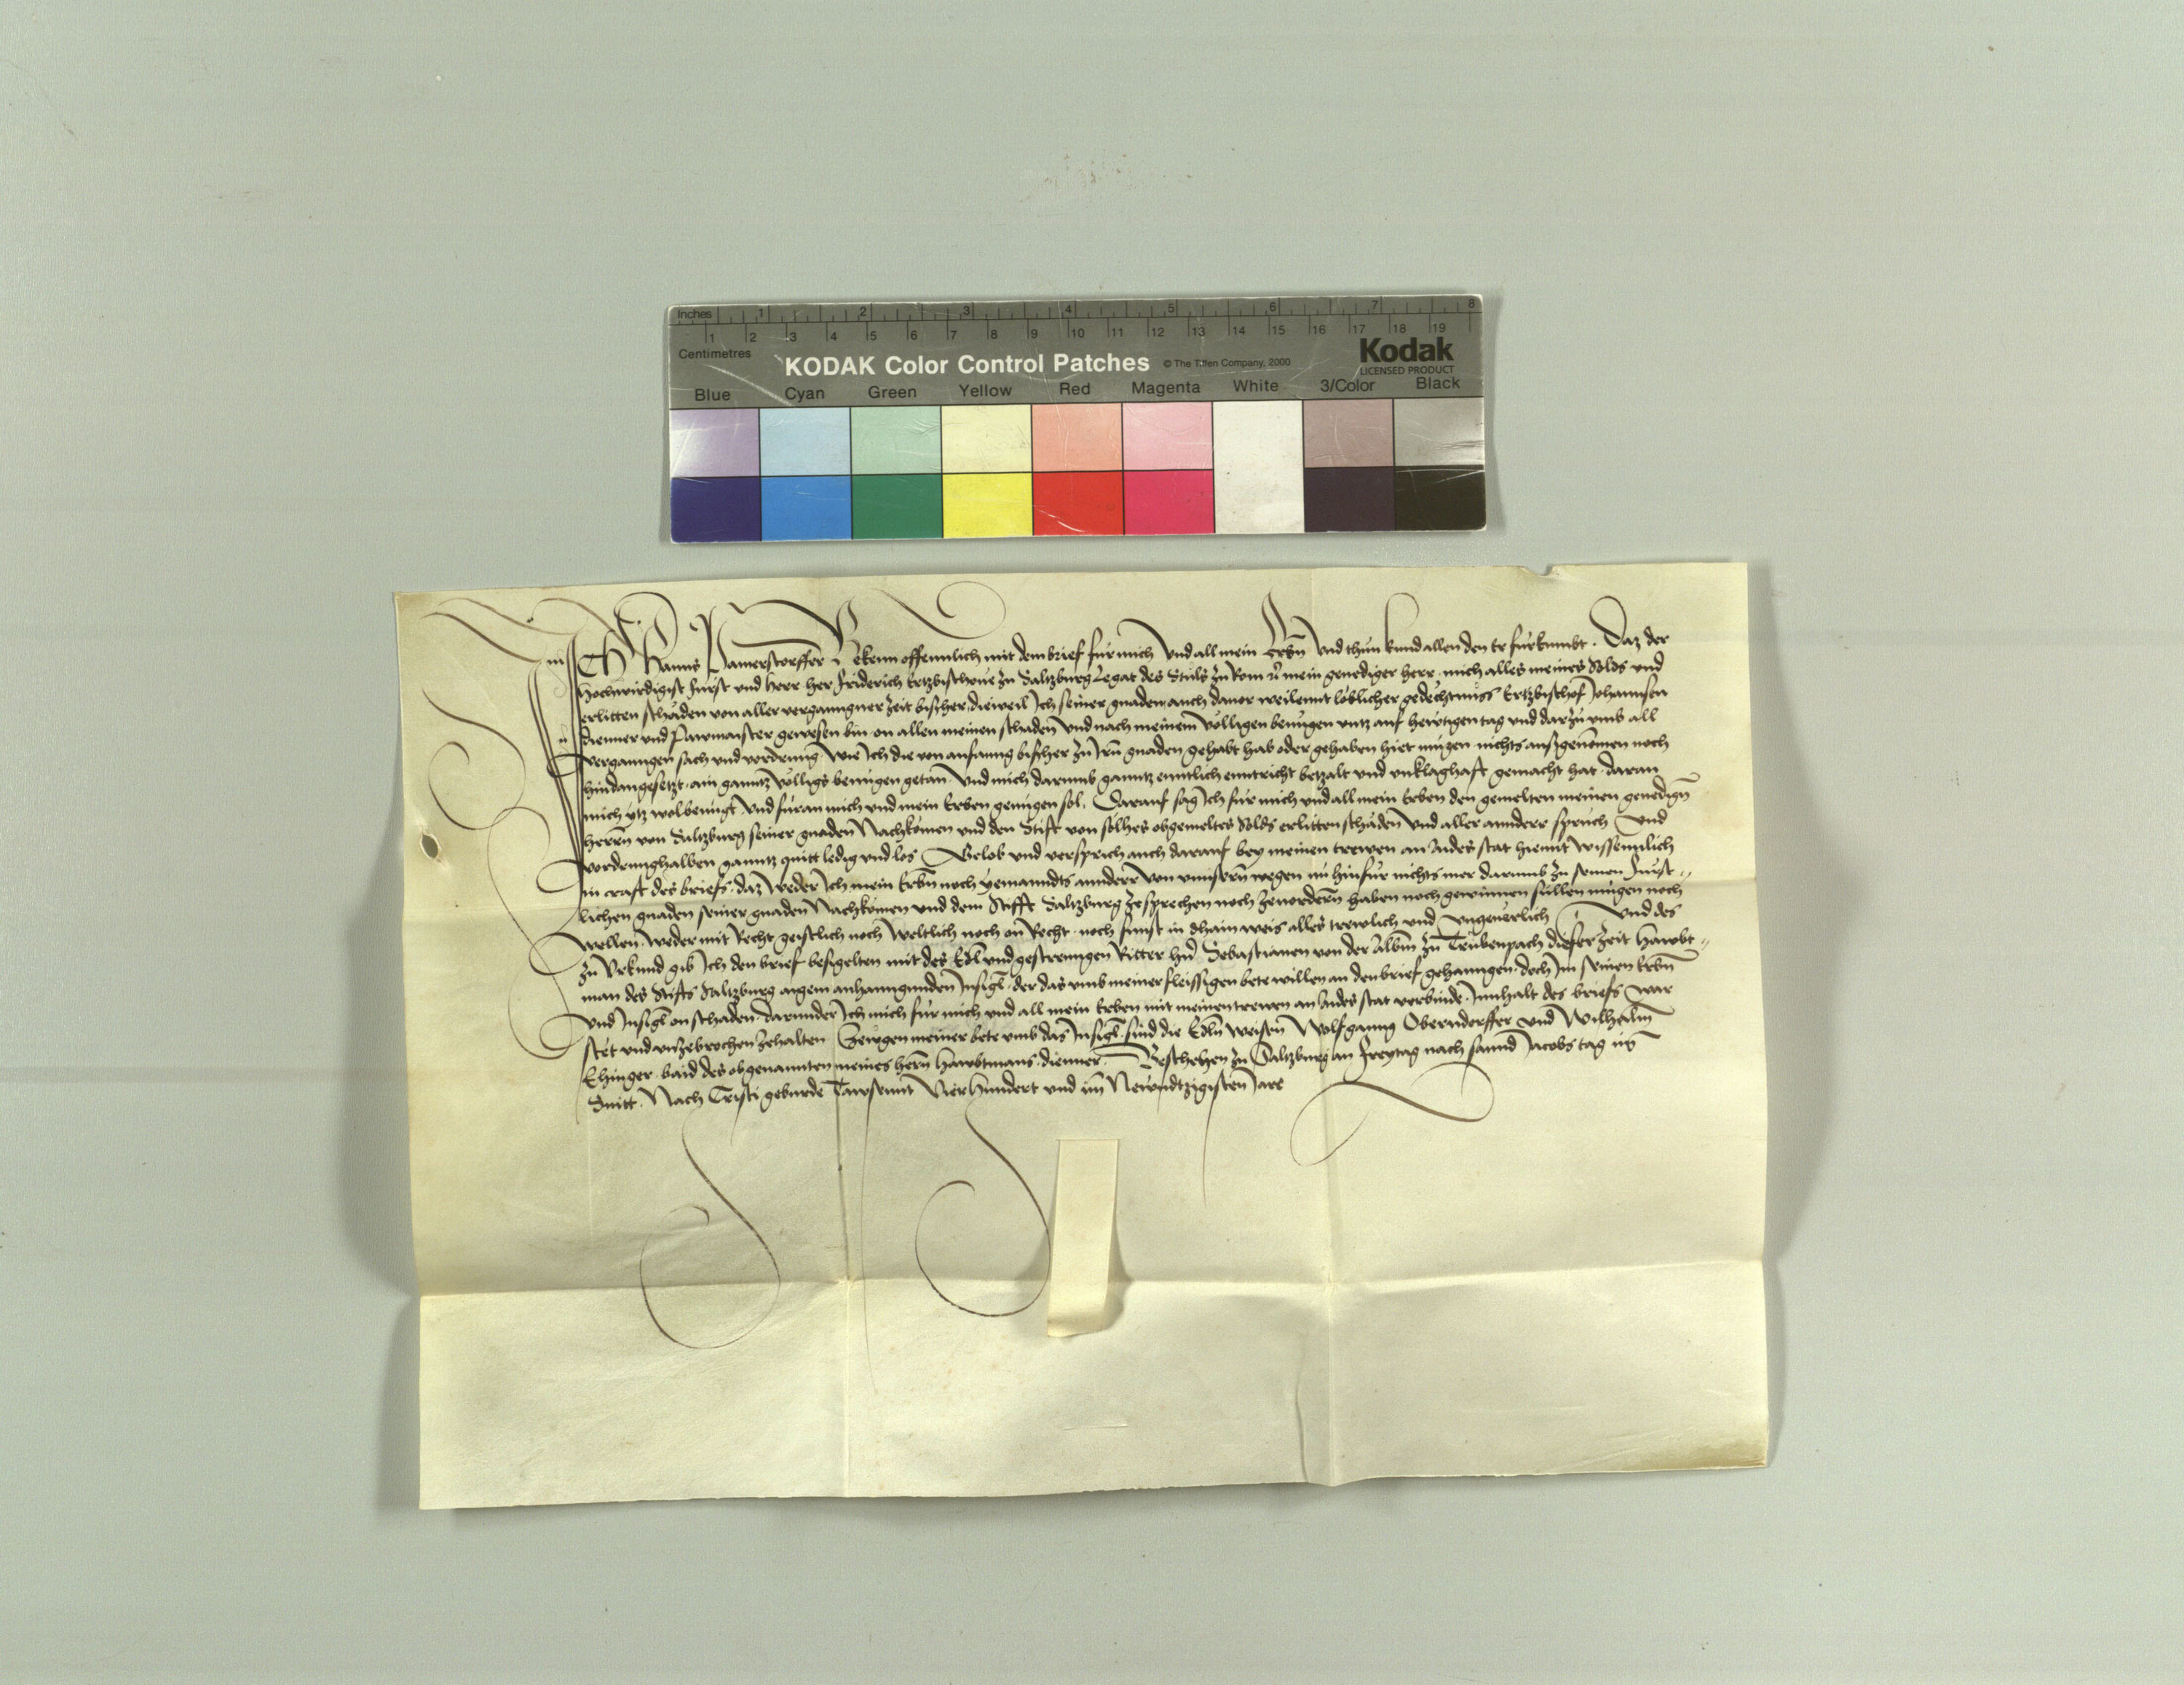 Inches 1 2 3 4 5 6 7 8
1 2 3 4 5 6 7 8 9 10 11 12 13 14 15 16 17 18 19
Centimetres
KODAK Color Control Patches © The Tiffen Company, 2000 Kodak
LICENSED PRODUCT
Blue Cyan Green Yellow Red Magenta White 3/Color Black
ICH Hanns Pamerstorffer Bekenn offennlich mit dem brief fur mich Vnd all mein Erbn̄ Vnd thun kund allen den er furkumbt. Daz der
Hochwirdigist furst vnd herr her Friderich Ertzbischoue zu Saltzburg Legat des Stuls zu Rom mein genediger herr, mich alles meines Solds vnd
erlitten schaden von aller verganngner zeit bisher, dieweil Ich seiner gnaden auch dauor weilennt loblicher gedechtnüss Ertzbischof Johannsen
dienner vnd Pawmaister gewesen bin, on allen meinen schaden Vnd nach meinem volligen benugen vntz auf hewtigen tag vnd darzu vmb all
verganngen sach vnd vordrung, Wie Ich die von anfanng bisher zu Irn̄ gnaden gehabt hab oder gehaben hiet mugen nichts ausgenomen noch
hindangesetzt, ain ganntz volligs benugen getan, Vnd mich darumb ganntz enntlich enntricht betzalt vnd vnklaghaft gemacht hat, daran
mich ytz wol benugt, Vnd furan mich vnd mein Erben genugen sol. Darauf sag Ich fur mich vnd all mein Erben den gemelten meinen genedign̄
herrn̄ von Saltzburg seiner gnaden Nachkomen vnd den Stift von solhes obgemeltes Solds erlitten schaden Vnd aller annderr spruch Vnd
vordrung halben ganntz quitt ledig vnd los Gelob vnd versprich auch darauf bey meinen trewen an Aides stat hiemit Wissenntlich
in craft des briefs, daz weder Ich mein Erbn̄ noch yemanndts annderr von vnnsern̄ wegen nu hinfur nichts mer darumb zu seinen Furst-
lichen gnaden seiner gnaden Nachkomen vnd dem Stifft Saltzburg zesprechen noch zeuordern̄ haben noch gewinnen sullen mugen noch
wellen, weder mit Recht geistlich noch Weltlich noch on Recht, noch sunst in dhain weis alles trewlich vnd Vngeuerlich Vnd des
zu Vrkund gib Ich den brief besigelten mit des Edln̄ vnd gestrengen Ritter hn̄ Sebastianen von der Albm̄ zu Trübenpach dieser zeit Hawbt-
man des Stifts Saltzburg aigem anhanngunden Insigl, der das vmb meiner fleissigen bete willen an den brief gehanngen, doch Im seinen Erbn̄
vnd Insigl on schaden, darunder Ich mich fur mich vnd all mein Erben mit meinen trewen an Aides stat verbinde, Innhalt des briefs war
stet vnd vnzebrochen zehalten Gezewgen meiner bete vmb das Insigl, sind die Edln̄ weisen Wolfganng Oberndorffer vnd Wilhalm̄
Ehinger, baid des obgenannten meines hern̄ Hawbtmans, dienner Beschehen zu Saltzburg an Freytag nach sannd Jacobs tag im̄
Snitt. Nach Cristi geburde Tawsennt Vierhundert vnd im Newndtzigisten Jare